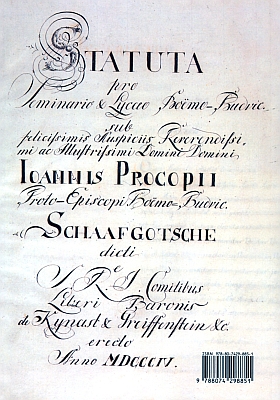 STATUTA
pro
Seminario & Lycæo Boëmo-Budvic.
sub
felicissimis Auspiciis Reverendissi,
mi ac Illustrissimi Domini Domini
IOANNIS PROCOPII
Proto-Episcopi Boëmo-Budvic.
SCHAAFGOTSCHE
dicti
S. R. I. Comitibus
Liberi Baronis
de Kynast & Greiffenstein &c.
erecto
Anno MDCCCIV.
ISBN 978-80-7429-885-1
9 788074 298851